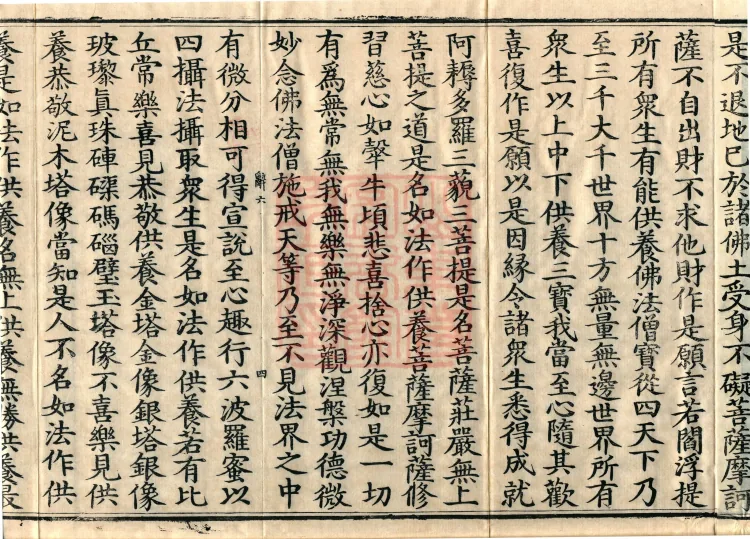 是不退地已於諸佛土受身不礙菩薩摩訶
薩不自出財不求他財作是願言若閻浮提
所有衆生有能供養佛法僧寶從四天下乃
至三千大千世界十方無量無邊世界所有
衆生以上中下供養三寶我當至心隨其歡
喜復作是願以是因緣令諸衆生悉得成就
阿耨多羅三藐三菩提是名菩薩莊嚴無上
菩提之道是名如法作供養菩薩摩訶薩修
習慈心如𤛗牛頃悲喜捨心亦復如是一切
有爲無常無我無樂無淨深觀涅槃功德微
妙念佛法僧施戒天等乃至不見法界之中
六 四
有微分相可得宣說至心趣行六波羅蜜以
四攝法攝取衆生是名如法作供養若有比
丘常樂喜見恭敬供養金塔金像銀塔銀像
玻瓈眞珠硨磲碼碯璧玉塔像不喜樂見供
養恭敬泥木塔像當知是人不名如法作供
養是如法作供養名無上供養無勝供養最